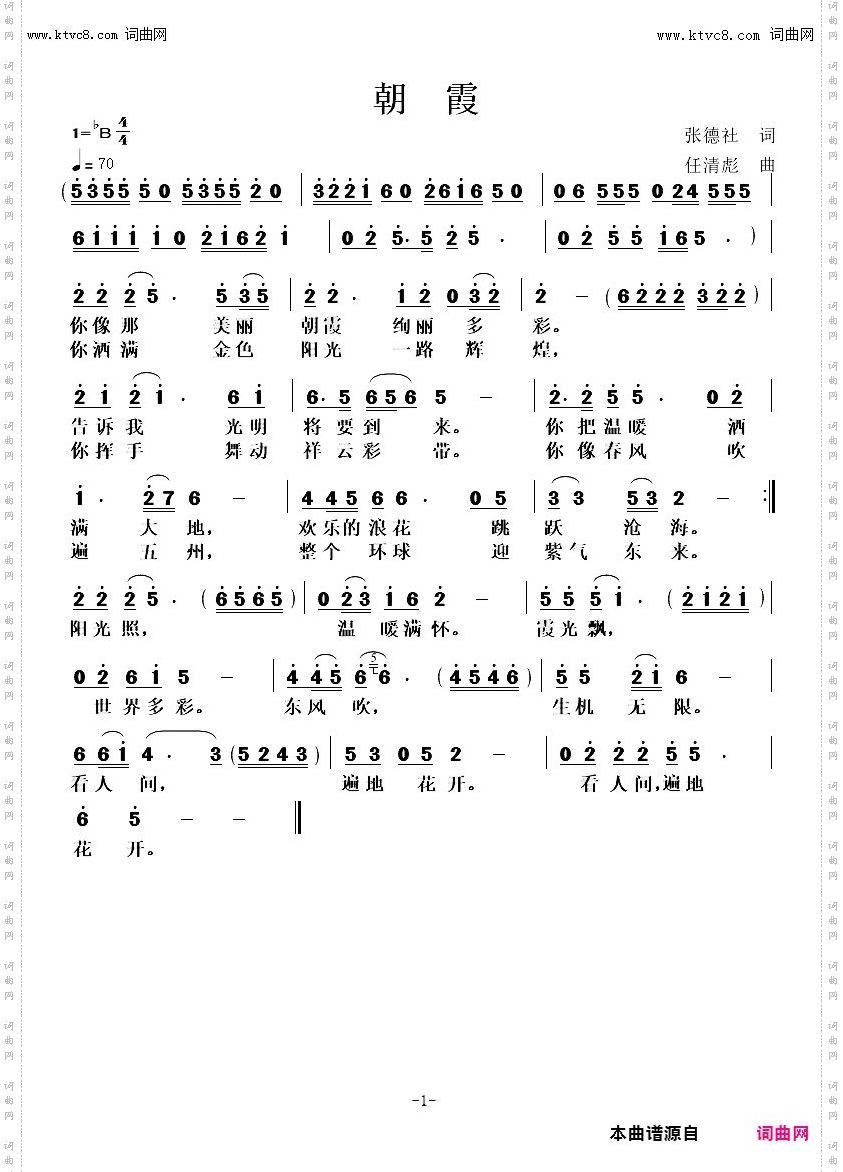 www.ktvc8.com 词曲网
www.ktvc8.com 词曲网
朝 霞
1=♭B 4/4
♩= 70
张德社 词
任清彪 曲
(5355 50 5355 20 | 3221 60 26165 0 | 06 555 024 555 |
6111 10 21621 | 02 5·5 25 · | 02 55 165 · )
22 25 · 535 | 22 · 12 032 | 2 – (6222 322) |
你像那 美丽 朝霞 绚丽 多 彩。
你洒满 金色 阳光 一路 辉 煌,
21 21 · 61 | 6·5 656 5 – | 2·2 55 · 02 |
告诉我 光明 将要到 来。 你把温暖 洒
你挥手 舞动 祥云彩 带。 你像春风 吹
1 · 276 – | 44566 · 05 | 33 532 – :|
满 大 地, 欢乐的浪花 跳 跃 沧海。
遍 五 州, 整个 环球 迎 紫气 东 来。
22 25 · (6565) | 023 162 – | 55 51 · (2121) |
阳光照, 温 暖满怀。 霞光飘,
02 615 – | 445 66 · (4546) | 55 216 – |
世界多彩。 东风 吹, 生机 无 限。
661 4 · 3(5243) | 53 052 – | 02 22 55 · |
看人 间, 遍地 花开。 看人间,遍地
6 5 – –
花 开。
-1-
本曲谱源自 词曲网